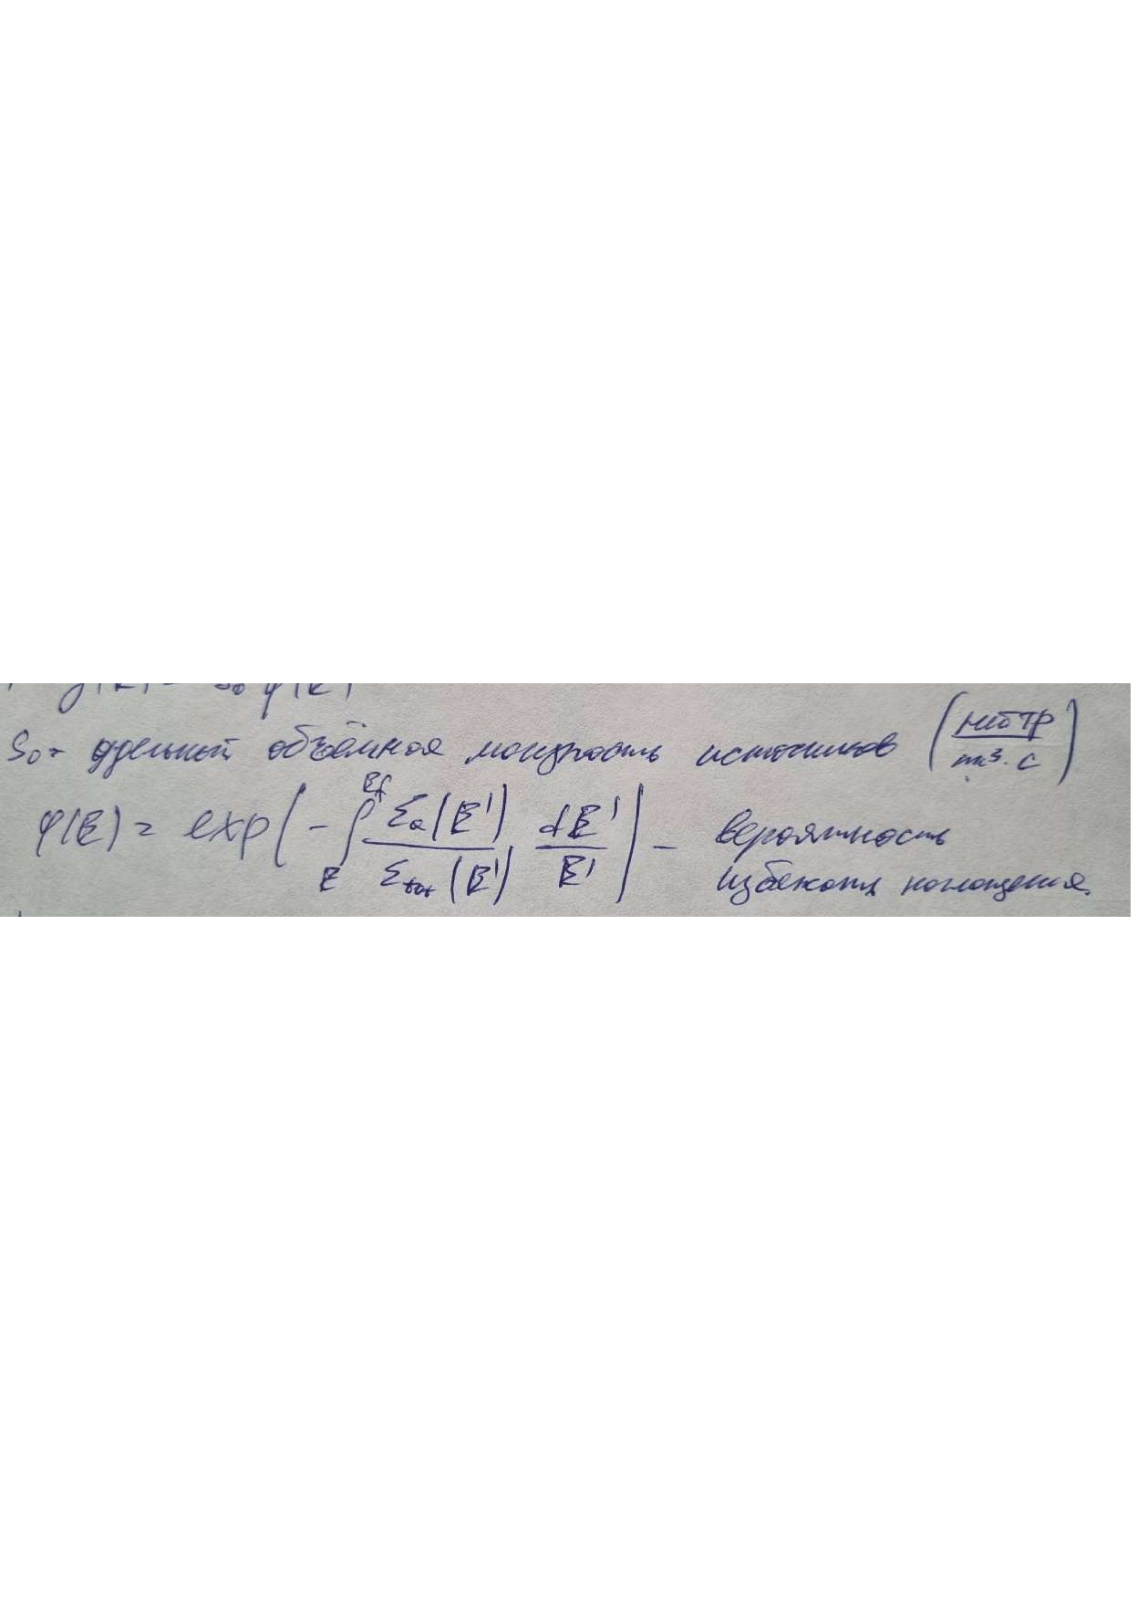 S₀ - удельной объёмная мощность источников (нейтр/см³·с)
φ(E) = exp(-∫_E^{Ef} Σa(E')/Σtot(E') dE'/E') - вероятность
избежать поглощения.